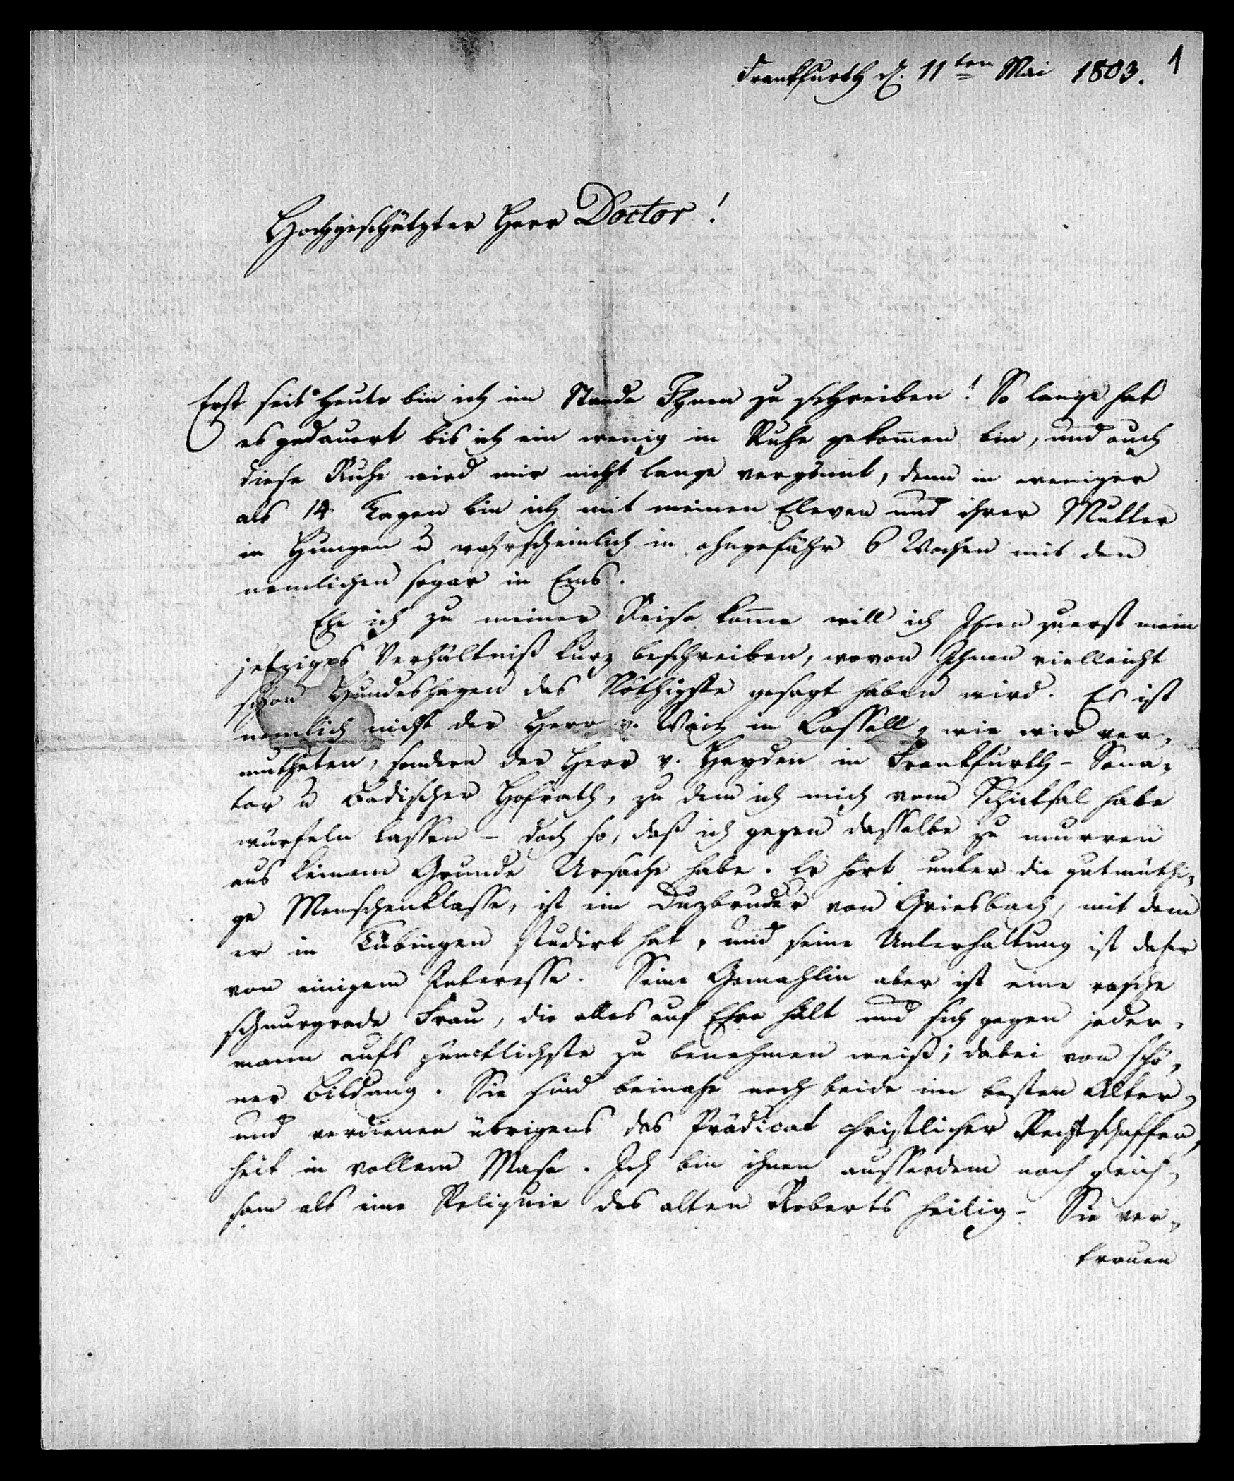 Frankfurth d. 11ten Mai 1803. 1
Hochgeschätzter Herr Doctor!
Erst seit heute bin ich im Stande Ihnen zu schreiben! So lange hat
es gedauert bis ich ein wenig in Ruhe gekom̅en bin, und auch
diese Ruhe wird mir nicht lange vergönnt, denn in weniger
als 14 Tagen bin ich mit meinen Eleven und ihrer Mutter
in Hungen u wahrscheinlich in ohngefähr 6 Wochen mit den
nemlichen sogar in Ems.
Ehe ich zu meiner Reise kom̅e will ich Ihnen zuerst mein
jetziges Verhältniß kurz beschreiben, wovon Ihnen vielleicht
schon Hundeshagen das Nöthigste gesagt haben wird. Es ist
nemlich nicht der Herr v. Waitz in Cassell, wie wir ver-
mutheten, sondern der Herr v. Heyden in Frankfurth - Sena-
tor u Badischer Hofrath, zu dem ich mich vom Schicksal habe
würfeln lassen - doch so, daß ich gegen dasselbe zu murren
aus keinem Grunde Ursache habe. Er hört unter die gutmüthi-
ge Menschenklasse, ist ein Duzbruder von Griesbach, mit dem
er in Tübingen studirt hat, und seine Unterhaltung ist daher
von einigem Interesse. Seine Gemahlin aber ist eine rasche
schnurgrade Frau, die alles auf Ehre hält und sich gegen jeder-
mann aufs pünctlichste zu benehmen weiß; dabei von schö-
ner Bildung. Sie sind beinahe noch beide im besten Alter,
und verdienen übrigens das Prädicat christlicher Rechtschaffen-
heit in vollem Mase. Ich bin ihnen ausserdem noch gleich-
sam als eine Reliquie des alten Roberts heilig - Sie ver-
trauen